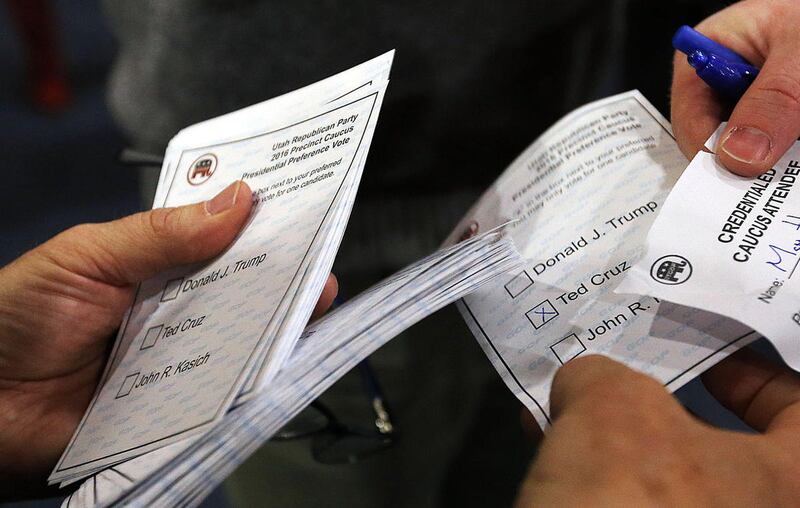 Utah Republican Party
2016 Precinct Caucus
Presidential Preference Vote
box next to your preferred
vote for one candidate.
Donald J. Trump
Ted Cruz
John R. Kasich
Utah Republican Party
2016 Precinct Caucus
Presidential Preference Vote
in the box next to your preferred
may vote for one candidate.
Donald J. Trump
Ted Cruz
John R.
CREDENTIALED
CAUCUS ATTENDEE
Name: